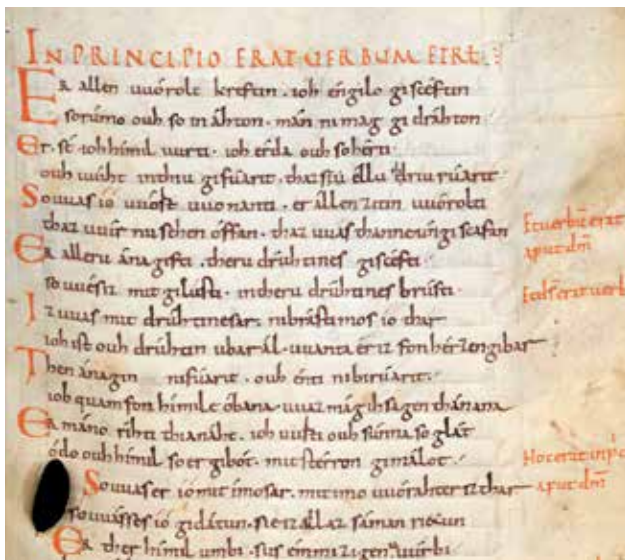 IN PRINCIPIO ERAT UERBUM ET RL
Er allen uuórolt kreftin · ioh éngilo gisceftin
so rúmo ouh so in áhton · mán ni mag gi dráhton ·
Er · sé · ioh hímil uurti · ioh érda ouh so hérti
ouh uuíht in thiu gifúarit · thaz síu éllu thriu rúarit ·
So uuas io uuórt uuonanti · er állen zitin uuórolti
thaz uuír nu sehen óffan · thaz uuas thanne úngi scafan
Etuerbū erat
aput dm̄
Er alleru ánagifti · theru drúhtines giscéfti ·
so uués iz mit gilústi · in theru drúhtines brústi ·
Iz uuas mit drúhtine sar · ni brást imos io thar
ioh ist ouh drúhtin ubar ál · uuanta ér iz fon hérzen gibar
Then ánagin ni fúarit · ouh énti ni birúarit ·
ioh quam fon hímile óbana · uuaz mág ih sagen thánana
Er máno rihti thia náht · ioh uurti ouh súnna so glát
ódo ouh hímil so er gibót · mit stérron gimálot ·
Hoc erat in p
aput dm̄
So uuas er io mit imo sar · mit imo uuórahter iz thar
so uuásses io gidátun · sie iz állaz sáman rietun
Er ther hímil umbi · sus émmizigen uúrbi ·